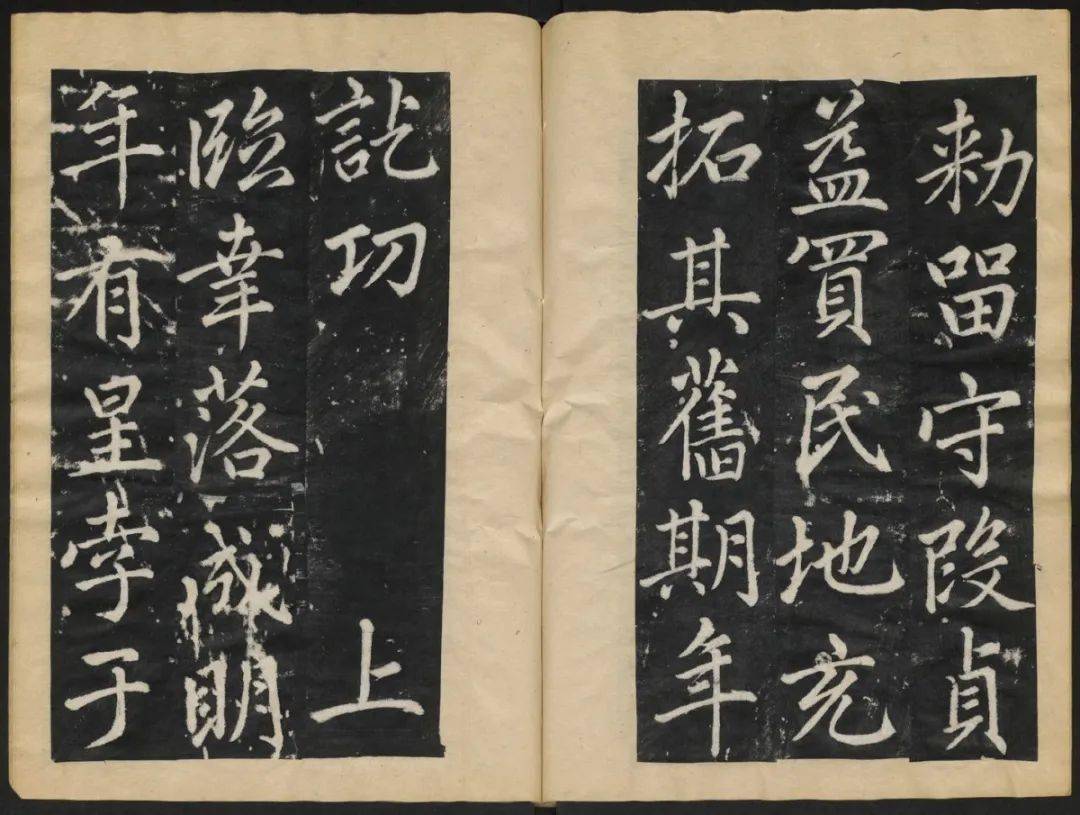 勑留守段貞
益買民地充
拓其舊期年
訖功上
臨幸落成明
年有星孛于